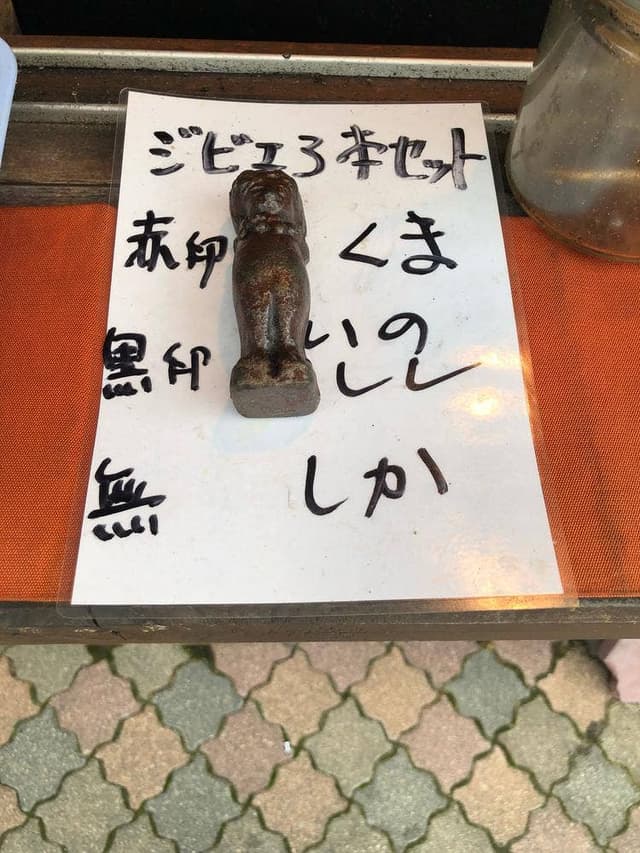 ジビエ3本セット
赤印 くま
黒印 いのしし
無 しか